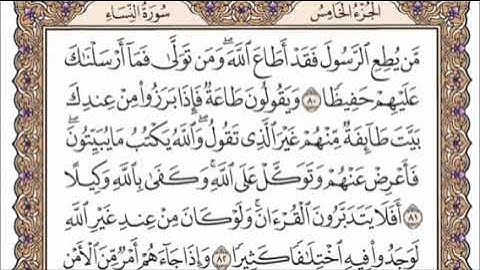 سُورَةُ النِّسَاءِ الجُزْءُ الخَامِسُ
مَّن يُطِعِ ٱلرَّسُولَ فَقَدْ أَطَاعَ ٱللَّهَۖ وَمَن تَوَلَّىٰ فَمَآ أَرْسَلْنَٰكَ
عَلَيْهِمْ حَفِيظًا ٨٠ وَيَقُولُونَ طَاعَةٌ فَإِذَا بَرَزُوا۟ مِنْ عِندِكَ
بَيَّتَ طَآئِفَةٌ مِّنْهُمْ غَيْرَ ٱلَّذِى تَقُولُۖ وَٱللَّهُ يَكْتُبُ مَا يُبَيِّتُونَۖ
فَأَعْرِضْ عَنْهُمْ وَتَوَكَّلْ عَلَى ٱللَّهِۚ وَكَفَىٰ بِٱللَّهِ وَكِيلًا
٨١ أَفَلَا يَتَدَبَّرُونَ ٱلْقُرْءَانَۚ وَلَوْ كَانَ مِنْ عِندِ غَيْرِ ٱللَّهِ
لَوَجَدُوا۟ فِيهِ ٱخْتِلَٰفًا كَثِيرًا ٨٢ وَإِذَا جَآءَهُمْ أَمْرٌ مِّنَ ٱلْأَمْنِ